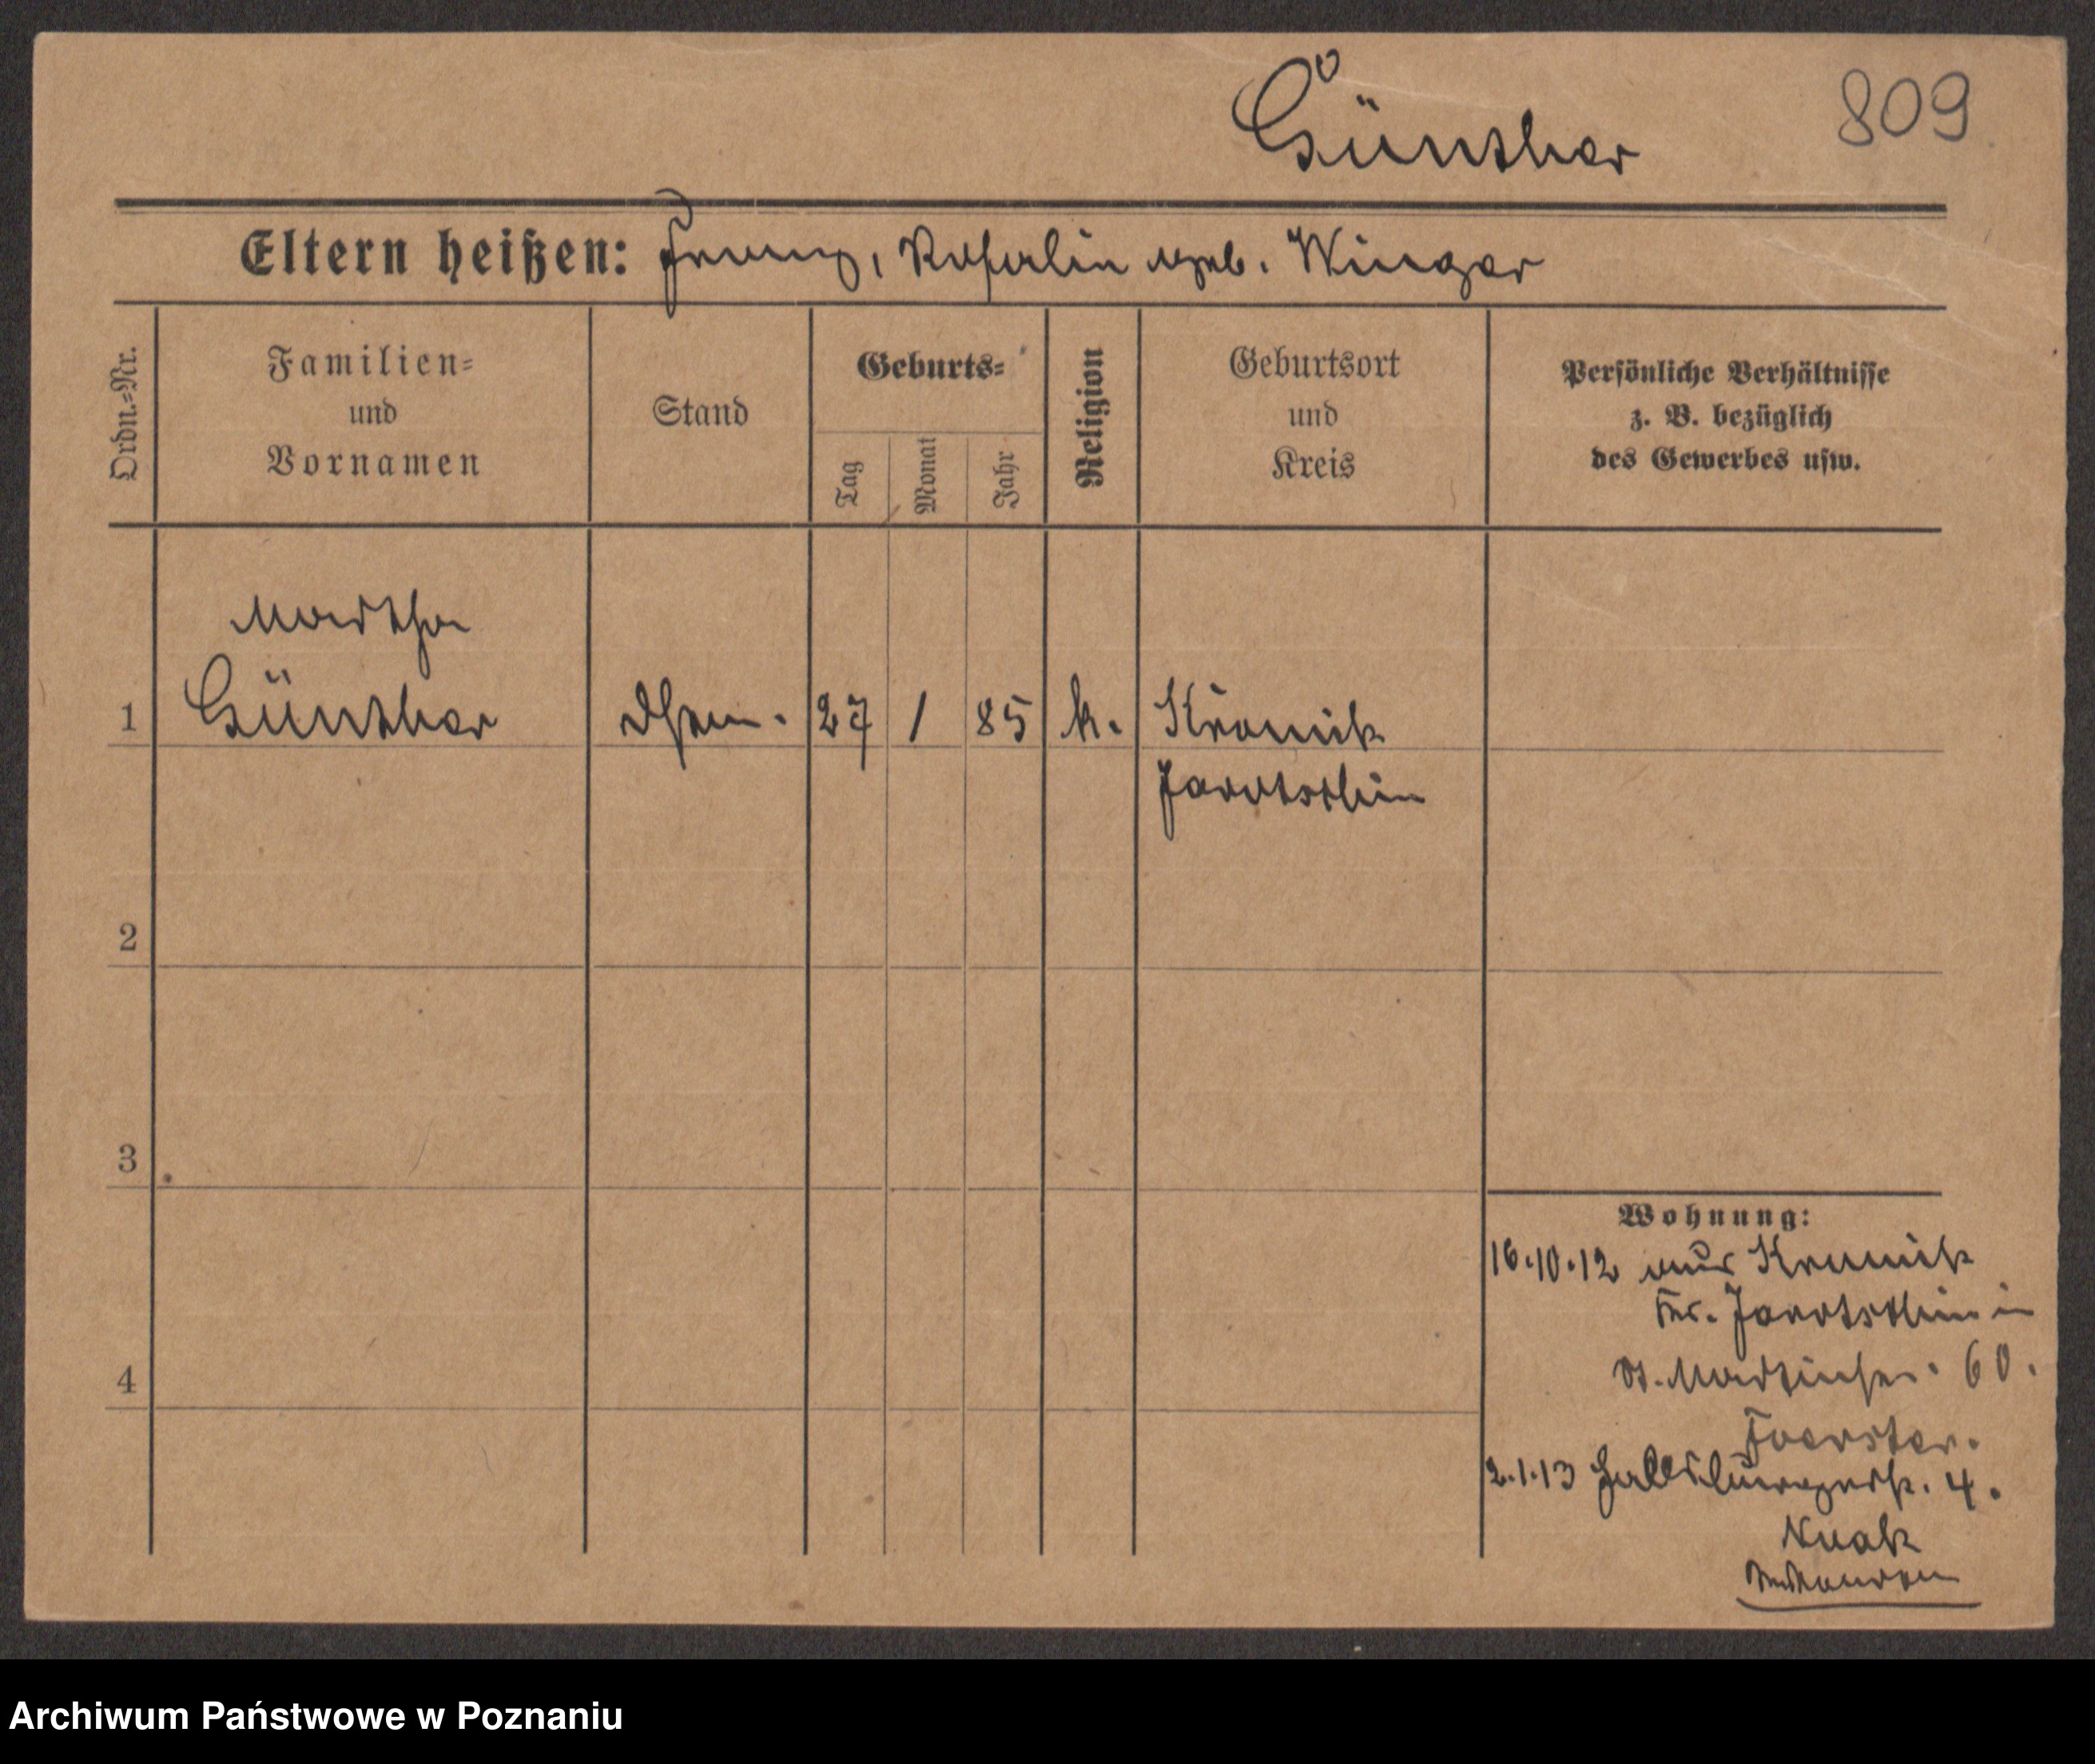 Günther
809
Eltern heißen: Franz, Rosalie geb. Winger
Ordn.-Nr.
Familien-
und
Vornamen
Stand
Geburts-
Tag
Monat
Jahr
Religion
Geburtsort
und
Kreis
Persönliche Verhältnisse
z. B. bezüglich
des Gewerbes usw.
Martha
1
Günther
27
1
85
k.
Kromik
Jarotschin
2
3
4
Wohnung:
16.10.12 aus Kromik
Kr. Jarotschin in
St. Martinstr. 60.
Foerster.
2.1.13 4.
Archiwum Państwowe w Poznaniu